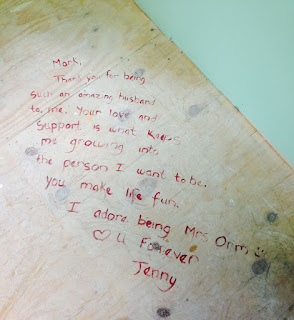 Mark,
Thank you for being
such an amazing husband
to me. Your love and
support is what keeps
me growing into
the person I want to be.
You make life fun.
I adore being Mrs Orm
♡ U Forever
Jenny